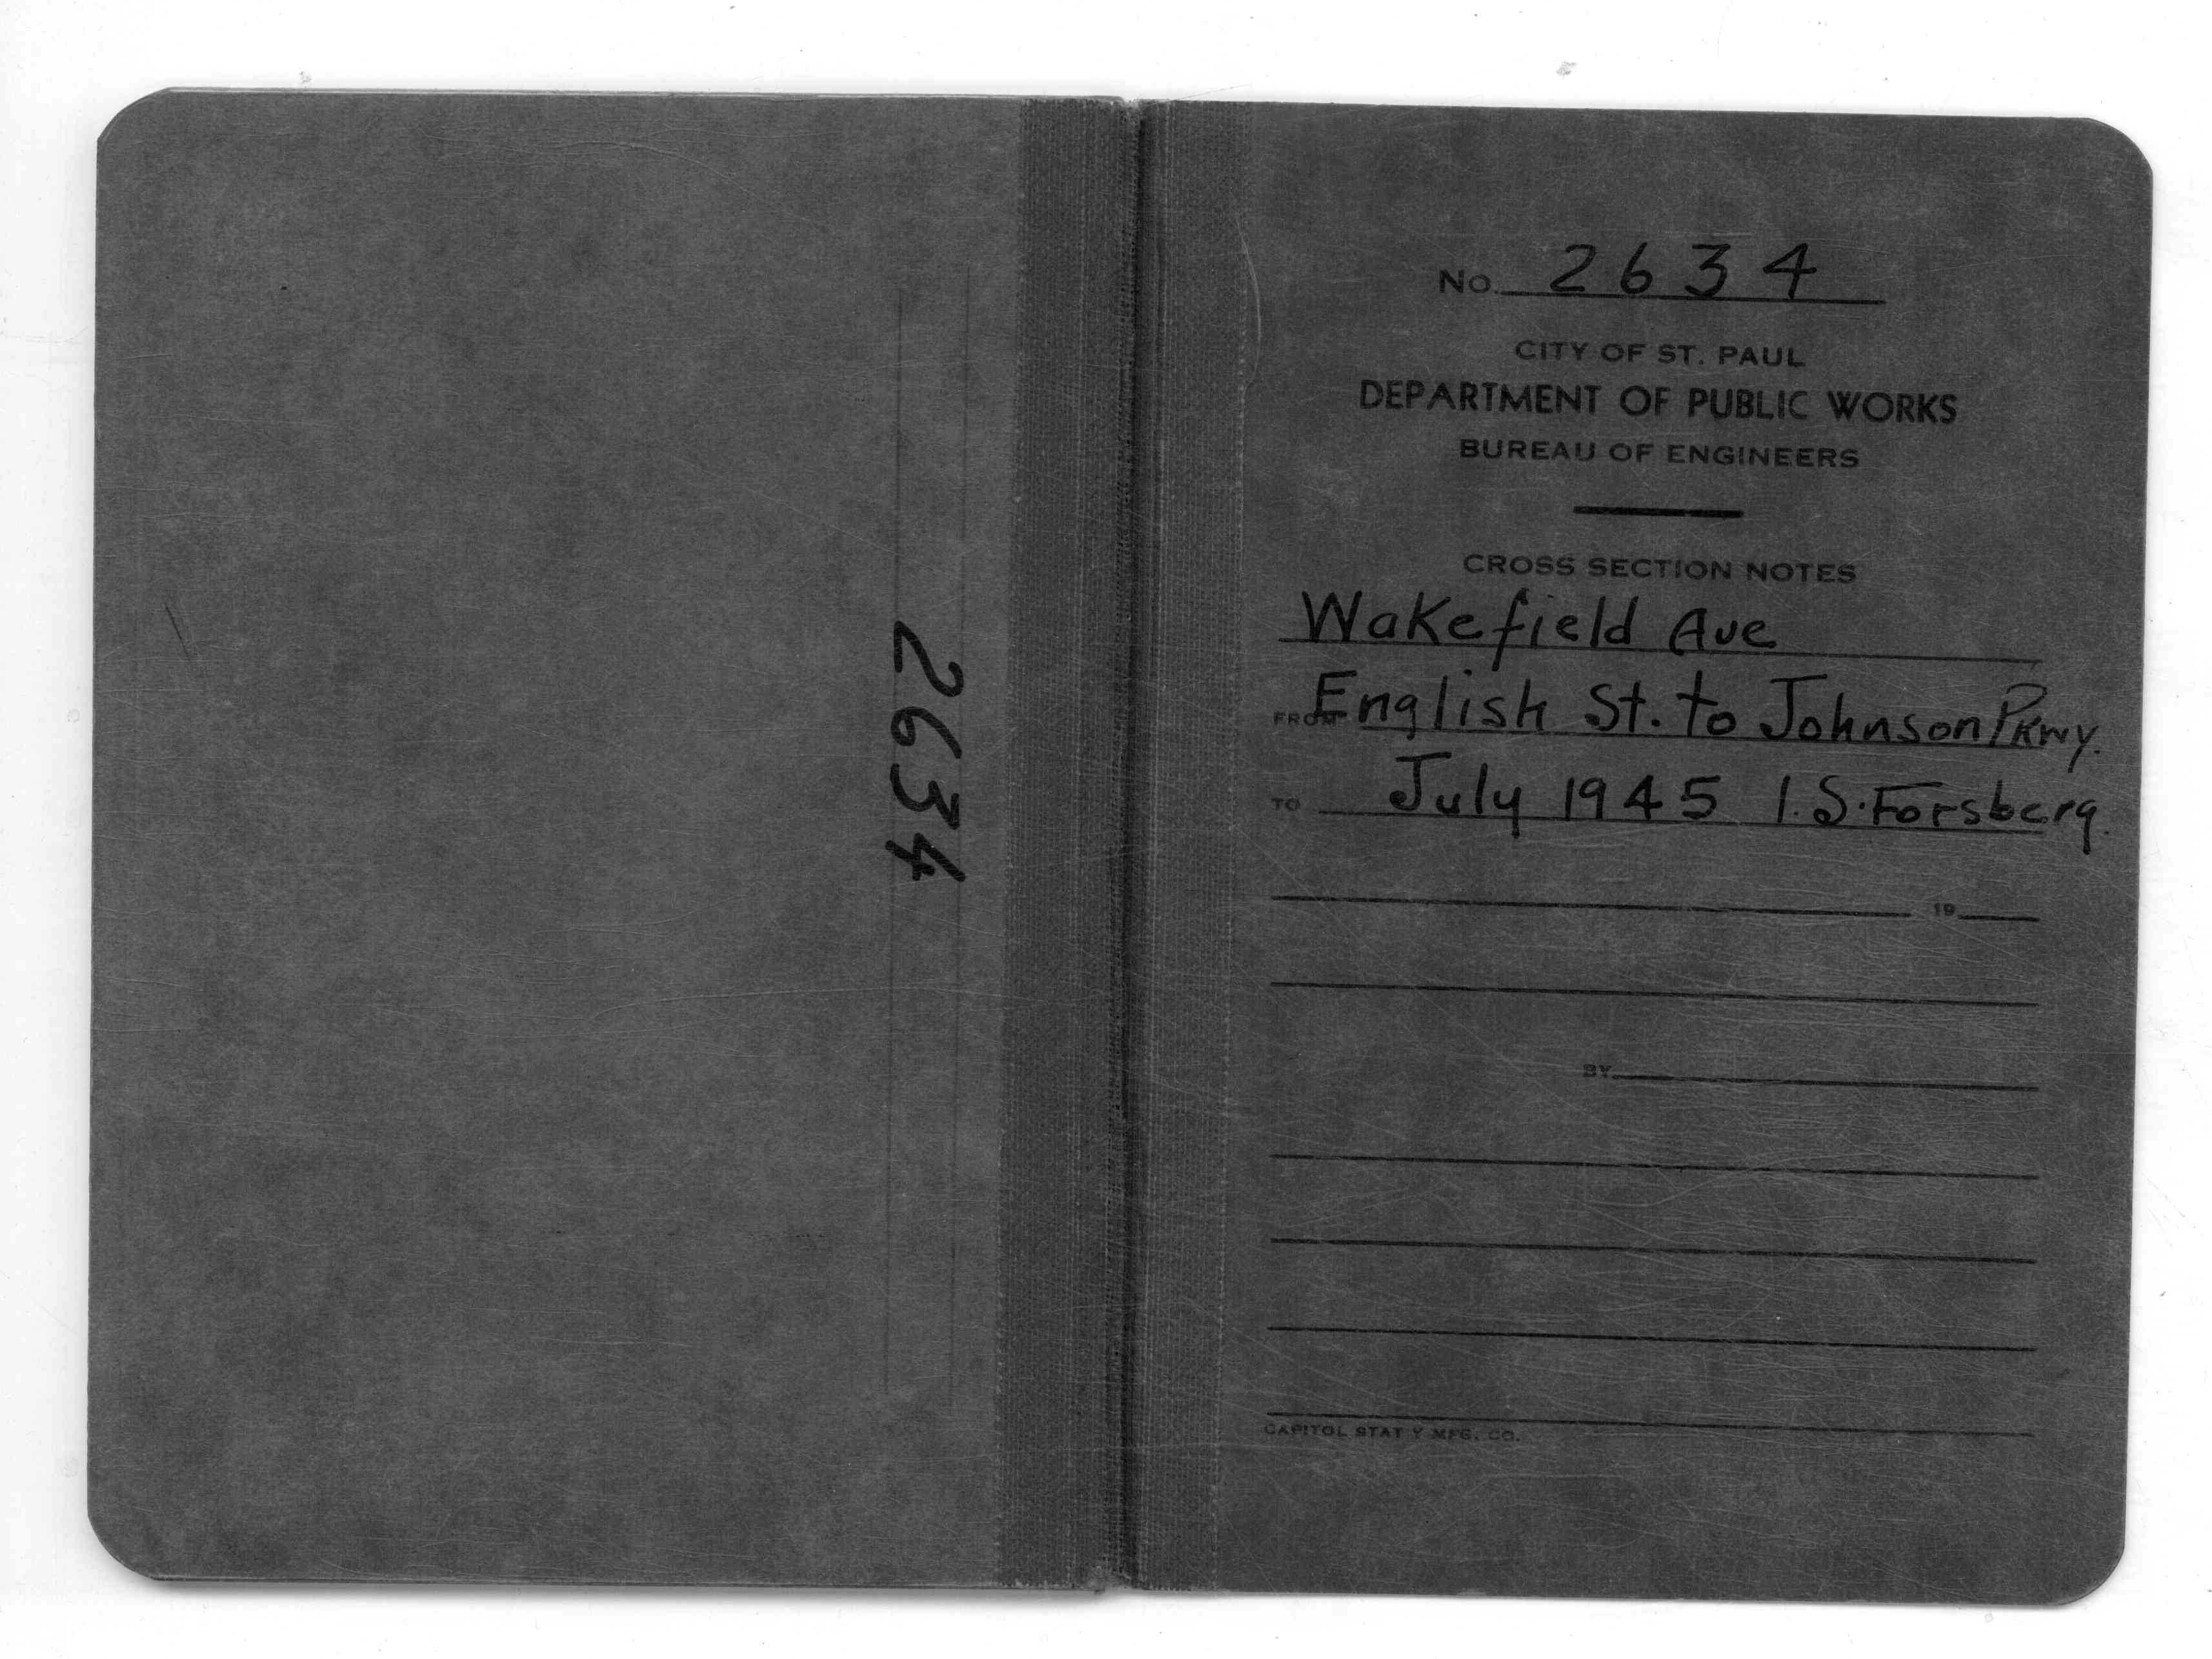 2634
No. 2634
CITY OF ST. PAUL
DEPARTMENT OF PUBLIC WORKS
BUREAU OF ENGINEERS
CROSS SECTION NOTES
Wakefield Ave
FROM English St. to Johnson Pkwy.
TO July 1945 I.S. Forsberg.
19
BY
CAPITOL STAT'Y MFG. CO.